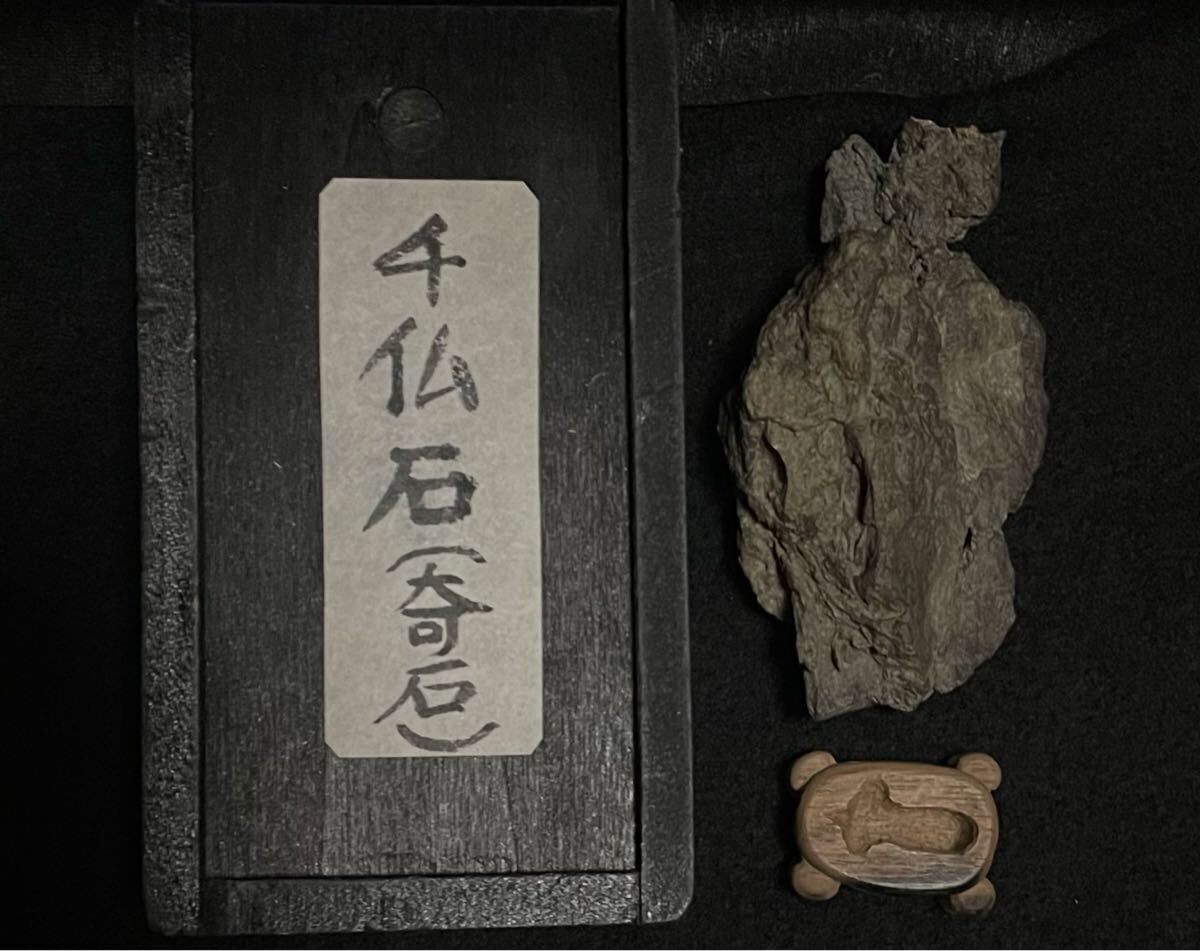 千仏石(奇石)